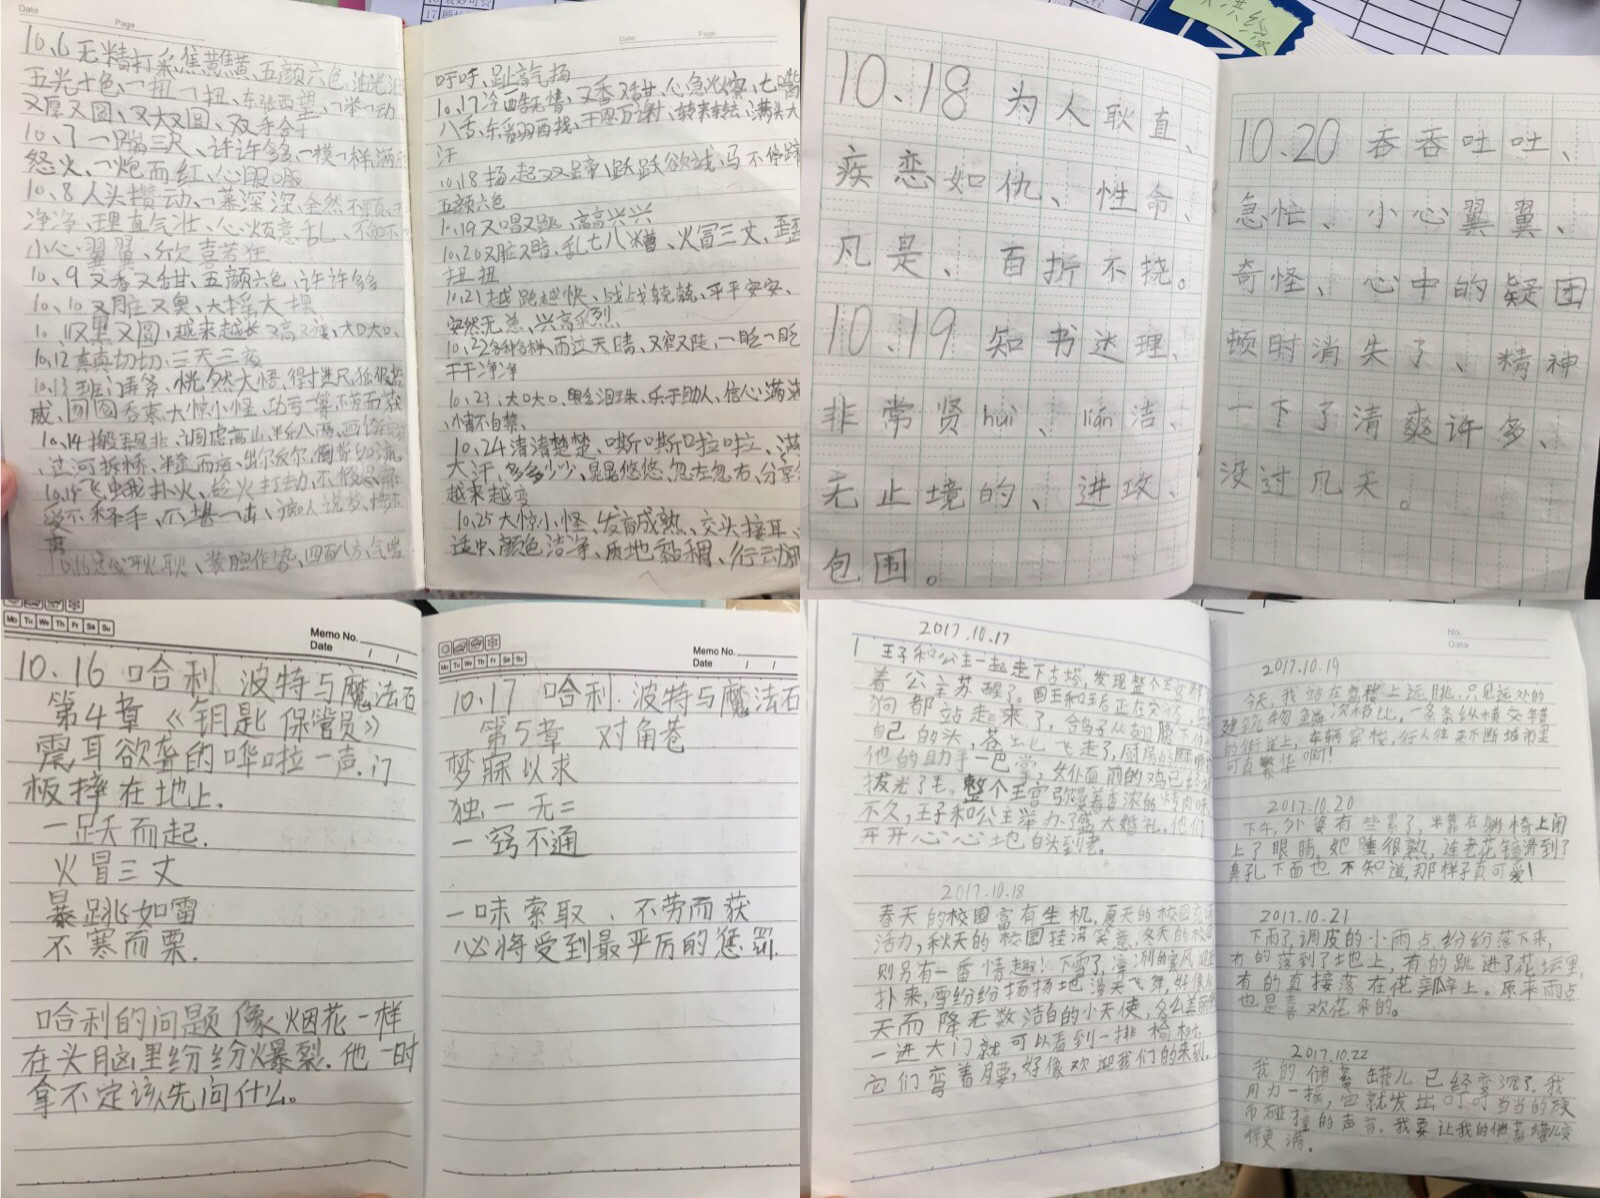 Date
Page
10.6 无精打采、焦黄焦黄、五颜六色、油光
五光十色、一扭一扭、东张西望、一举一动
又厚又圆、又大又圆、双手合十
10.7 一蹦三尺、许许多多、一模一样、满
怒火、一炮而红、心服口服
10.8 人头攒动、一幕深深、全然不顾、干
净净、理直气壮、心烦意乱、不知不
小心翼翼、欣喜若狂
10.9 又香又甜、五颜六色、许许多多
10.10 又脏又臭、大摇大摆
10.11 又黑又圆、越来越长、又高又、大口大口、
10.12 真真切切、三天三夜
10.13 班门弄斧、恍然大悟、得寸进尺、狐假
威、囫囵吞枣、大惊小怪、功亏一篑、不劳而获
10.14 搬弄是非、调虎离山、半斤八两、画
、过河拆桥、半途而废、出尔反尔、
10.15 飞蛾扑火、趁火打劫、不假思索
爱不释手、不堪一击、痴人说梦
10.16 忠心耿耿、装腔作势、四面八方、气喘
Date
Page
吁吁、趾高气扬
10.17 冷酷无情、又香又甜、心急火燎、七嘴
八舌、东翻西找、千恩万谢、转来转去、满头大
汗
10.18 扬起双蹄、跃跃欲试、马不停蹄
五颜六色
10.19 又唱又跳、高高兴兴
10.20 又脏又暗、乱七八糟、火冒三丈、歪歪
扭扭
10.21 越跑越快、战战兢兢、平平安安、
安然无恙、兴高采烈
10.22 各种各样、雨过天晴、又窄又陡、一眨一眨
干干净净
10.23 大口大口、黑色泪珠、乐于助人、信心满满
、情不自禁、
10.24 清清楚楚、嘶嘶啦啦、满
大汗、多多少少、晃晃悠悠、忽左忽右、分享
越来越多
10.25 大惊小怪、发育成熟、交头接耳、
适中、颜色洁净、质地黏稠、行云
10.18 为人耿直、
疾恶如仇、性命、
凡是、百折不挠。
10.19 知书达理、
非常贤huì、lián洁、
无止境的、进攻、
包围。
10.20 吞吞吐吐、
急忙、小心翼翼、
奇怪、心中的疑团
顿时消失了、精神
一下了清爽许多、
没过几天。
Mo Tu We Th Fr Sa Su
Memo No.
Date / /
10.16 哈利 波特与魔法石
第4章《钥匙保管员》
震耳欲聋的哗啦一声.门
板摔在地上.
一跃而起.
火冒三丈
暴跳如雷
不寒而栗.
哈利的问题像烟花一样
在头脑里纷纷爆裂.他一时
拿不定该先问什么。
Mo Tu We Th Fr Sa Su
Memo No.
Date / /
10.17 哈利·波特与魔法石
第5章 对角巷
梦寐以求
独一无二
一窍不通
一味索取、不劳而获
必将受到最严厉的惩罚.
2017.10.17
1 王子和公主一起走下古塔,发现整个王宫都
着公主苏醒了。国王和王后正在
狗都站起来了,鸽子从翅膀下
自己的头,苍蝇也飞走了,厨房的厨师
他的助手一巴掌,女仆面前的鸡已经
拔光了毛。整个王宫弥漫着香浓的烤肉味
不久,王子和公主举办了盛大婚礼,他们
开开心心地白头到老。
2017.10.18
春天的校园富有生机,夏天的校园充满
活力,秋天的校园挂满笑意,冬天的校园
则另有一番情趣!下雪了,凛冽的寒风迎面
扑来,雪纷纷扬扬地漫天飞舞,好像从
天而降无数洁白的小天使,多么美丽
一进大门就可以看到一排榆树,
它们弯着腰,好像欢迎我们的来到。
No.
Date
2017.10.19
今天,我站在高楼上远眺,只见远处的
建筑物鳞次栉比,一条条纵横交错
的街道上,车辆穿梭,行人往来不断,城市里
可真繁华啊!
2017.10.20
下午,外婆有些累了,半靠在躺椅上闭
上了眼睛,她睡很熟,连老花镜滑到了
鼻孔下面也不知道,那样子真可爱!
2017.10.21
下雨了,调皮的小雨点纷纷落下来,
有的落到了地上,有的跳进了花坛里,
有的直接落在花瓣上。原来雨点
也是喜欢花朵的。
2017.10.22
我的储蓄罐儿已经变沉了,我
用力一摇,它就发出叮叮当当的硬
币碰撞的声音。我要让我的储蓄罐儿变
得更满。